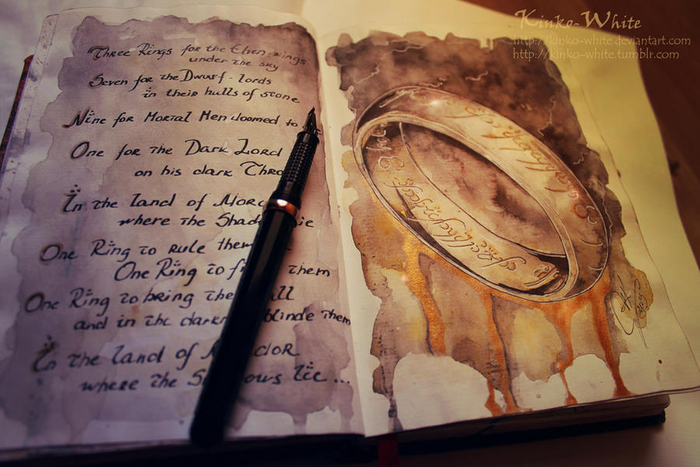 Three Rings for the Elven kings
under the sky
Seven for the Dwarf-lords
in their hulls of stone
Nine for Mortal Men doomed to
One for the Dark Lord
on his dark Thro
In the land of Mor
where the Shad ie
One Ring to rule the
One Ring to fi them
One Ring to bring the ll
and in the darkn blinde them
In the land of M dor
where the Sh dows lie ...
Kinko-White
http://kinko-white.deviantart.com
http://kinko-white.tumblr.com